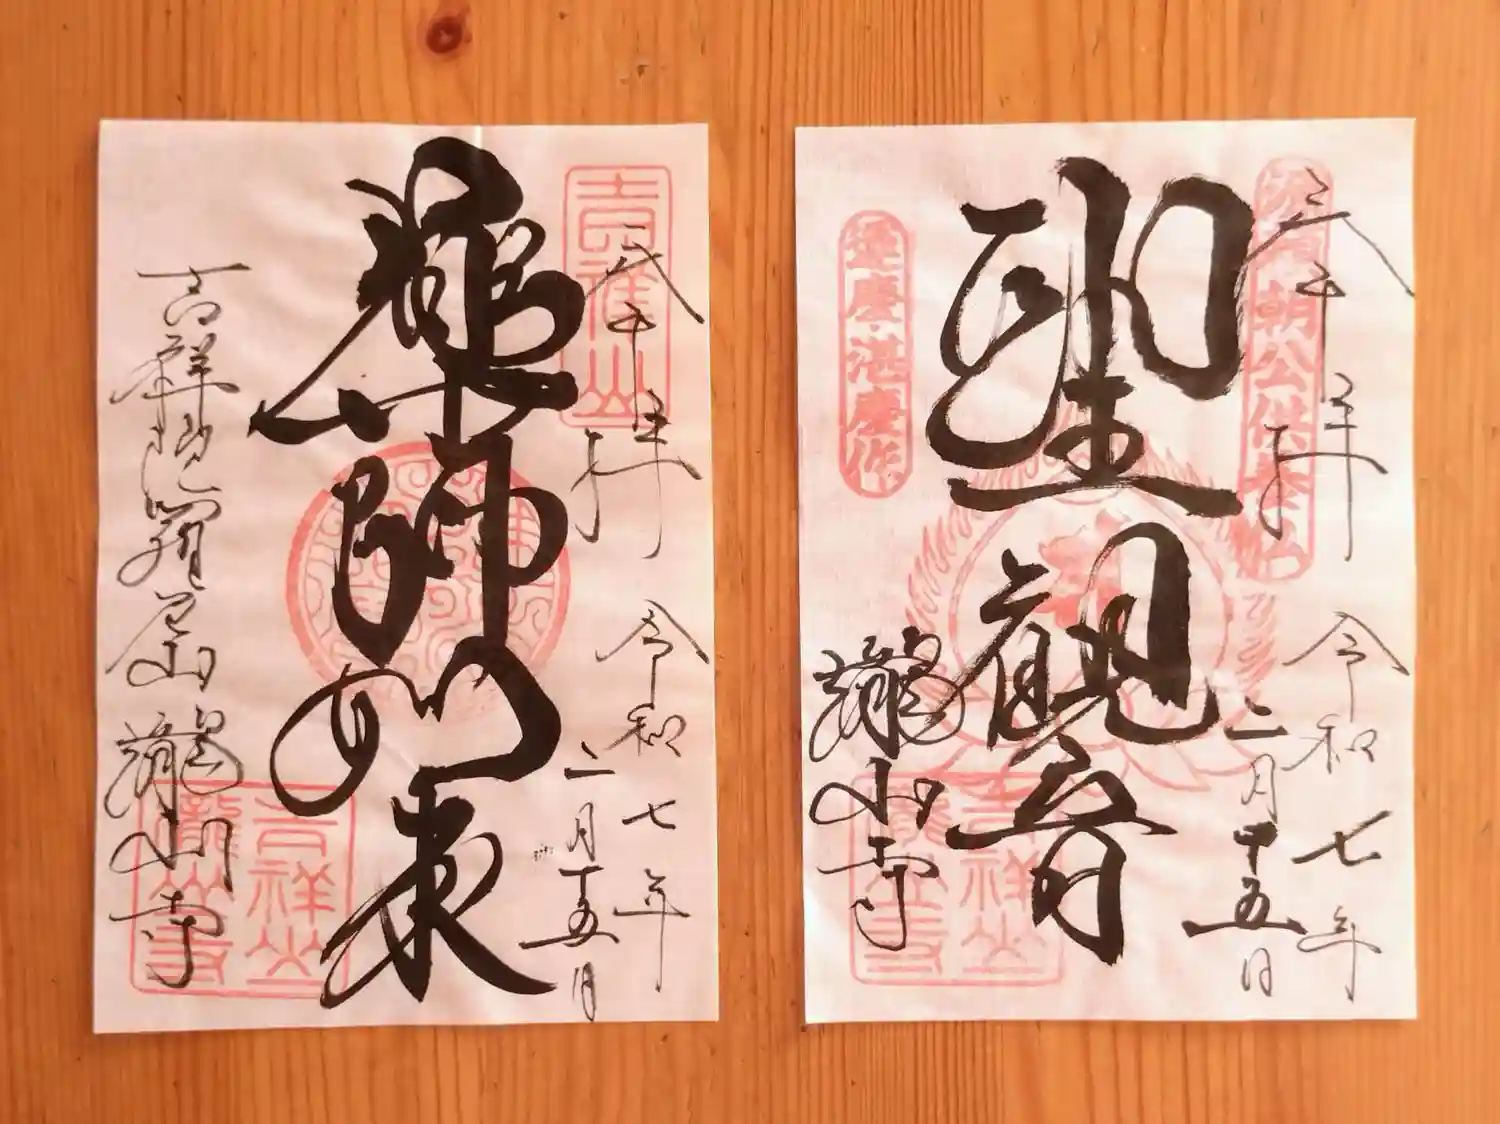 奉拝
令和七年
二月十五日
薬師如来
吉祥陀羅尼山
瀧山寺
吉祥山
吉祥山
瀧山寺
奉拝
令和七年
二月十五日
聖観音
瀧山寺
源頼朝公供養
運慶・湛慶作
吉祥山
瀧山寺